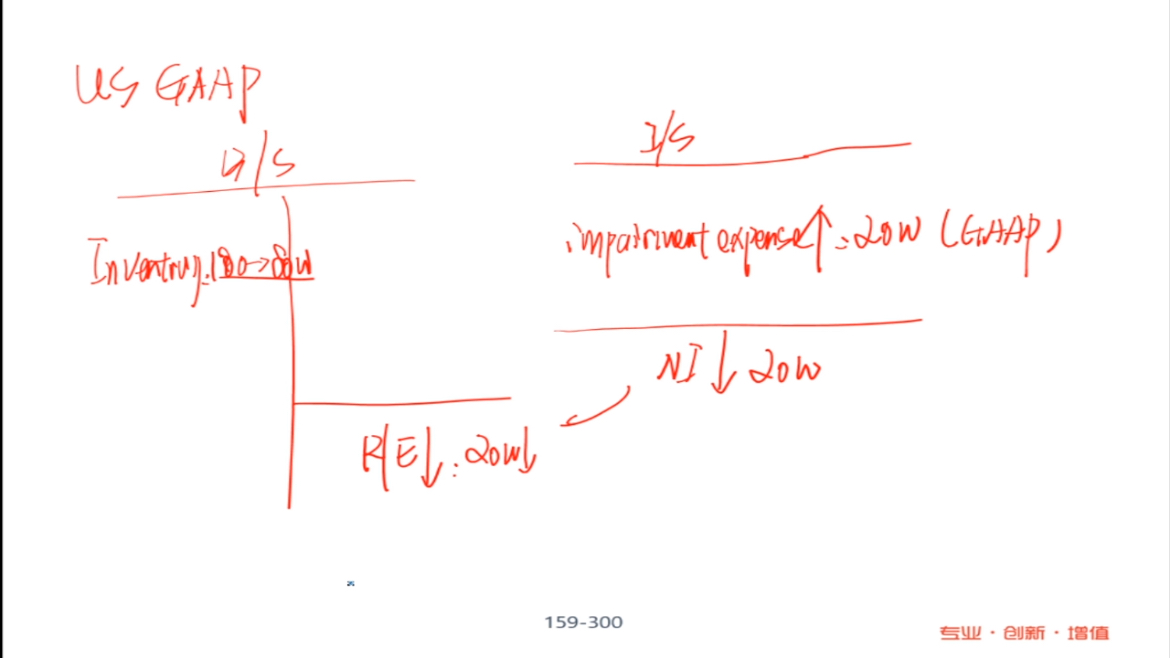 US GAAP
B/S
I/S
Inventory:100→80W
impairment expense↑:20W (GAAP)
NI↓20W
R/E↓:20W↓
159-300
专业·创新·增值